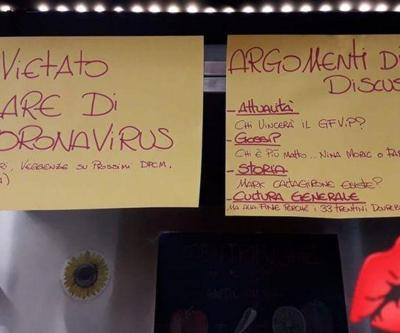 VIETATO
ARE DI
ORONAVIRUS
VEGGENZE SU PROSSIMI DPCM,
ARGOMENTI DI
DISCUS
- ATTUALITÀ
CHI VINCERÀ IL GFVIP?
- GOSSIP
CHI È PIÙ MATTO... NINA MORIC O FA
- STORIA
MARK CALTAGIRONE ESISTE?
- CULTURA GENERALE
MA ALLA FINE PERCHÈ I 33 TRENTINI